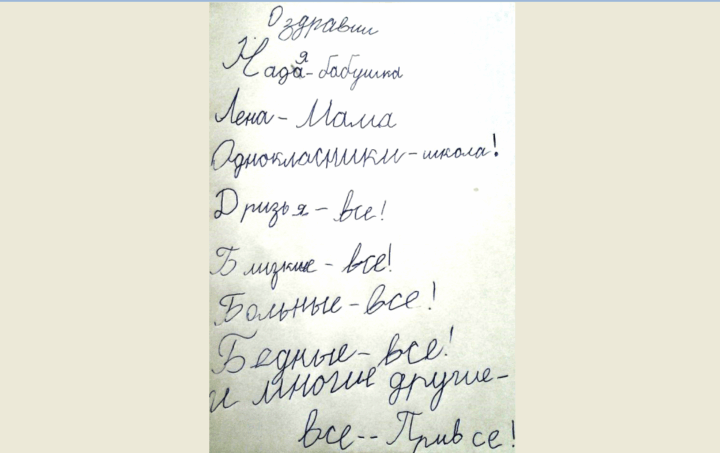 О здравии
Надя - бабушка
Лена - Мама
Однокласники - школа!
Друзья - все!
Близкие - все!
Больные - все!
Бедные - все!
и многие другие -
все --